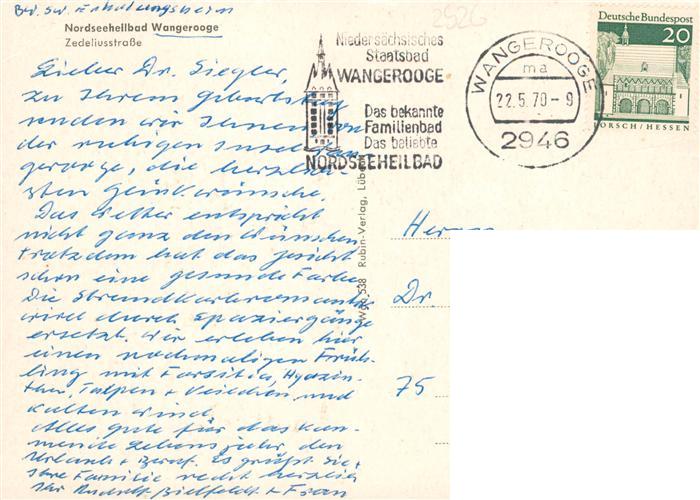 Erholungsheim
Nordseeheilbad Wangerooge
Zedeliusstraße
Lieber Dr. Siegler,
zu Ihrem Geburtstag
senden wir Ihnen von
der ruhigen Insel
gerooge, die herzlich-
sten Glückwünsche.
Das Wetter entspricht
nicht ganz den Wünschen
trotzdem hat das Gesicht
schon eine gesunde Farbe.
Die Strandkorbromantik
wird durch Spaziergänge
ersetzt. Wir erleben hier
einen nochmaligen Früh-
ling mit Forsitia, Hyazin-
then, Tulpen + Veilchen und
kalten Wind.
Alles gute für das kom-
mende Lebensjahr, den
Urlaub + Beruf. Es grüßt Sie +
Ihre Familie recht herzlich
Ihr Rudolf Bielfeldt + Frau
2526
Niedersächsisches
Staatsbad
WANGEROOGE
Das bekannte
Familienbad
Das beliebte
NORDSEEHEILBAD
WANGEROOGE
ma
22.5.70-9
2946
Deutsche Bundespost
20
LORSCH/HESSEN
538 Rubin-Verlag, Lüb
Herrn
Dr.
75